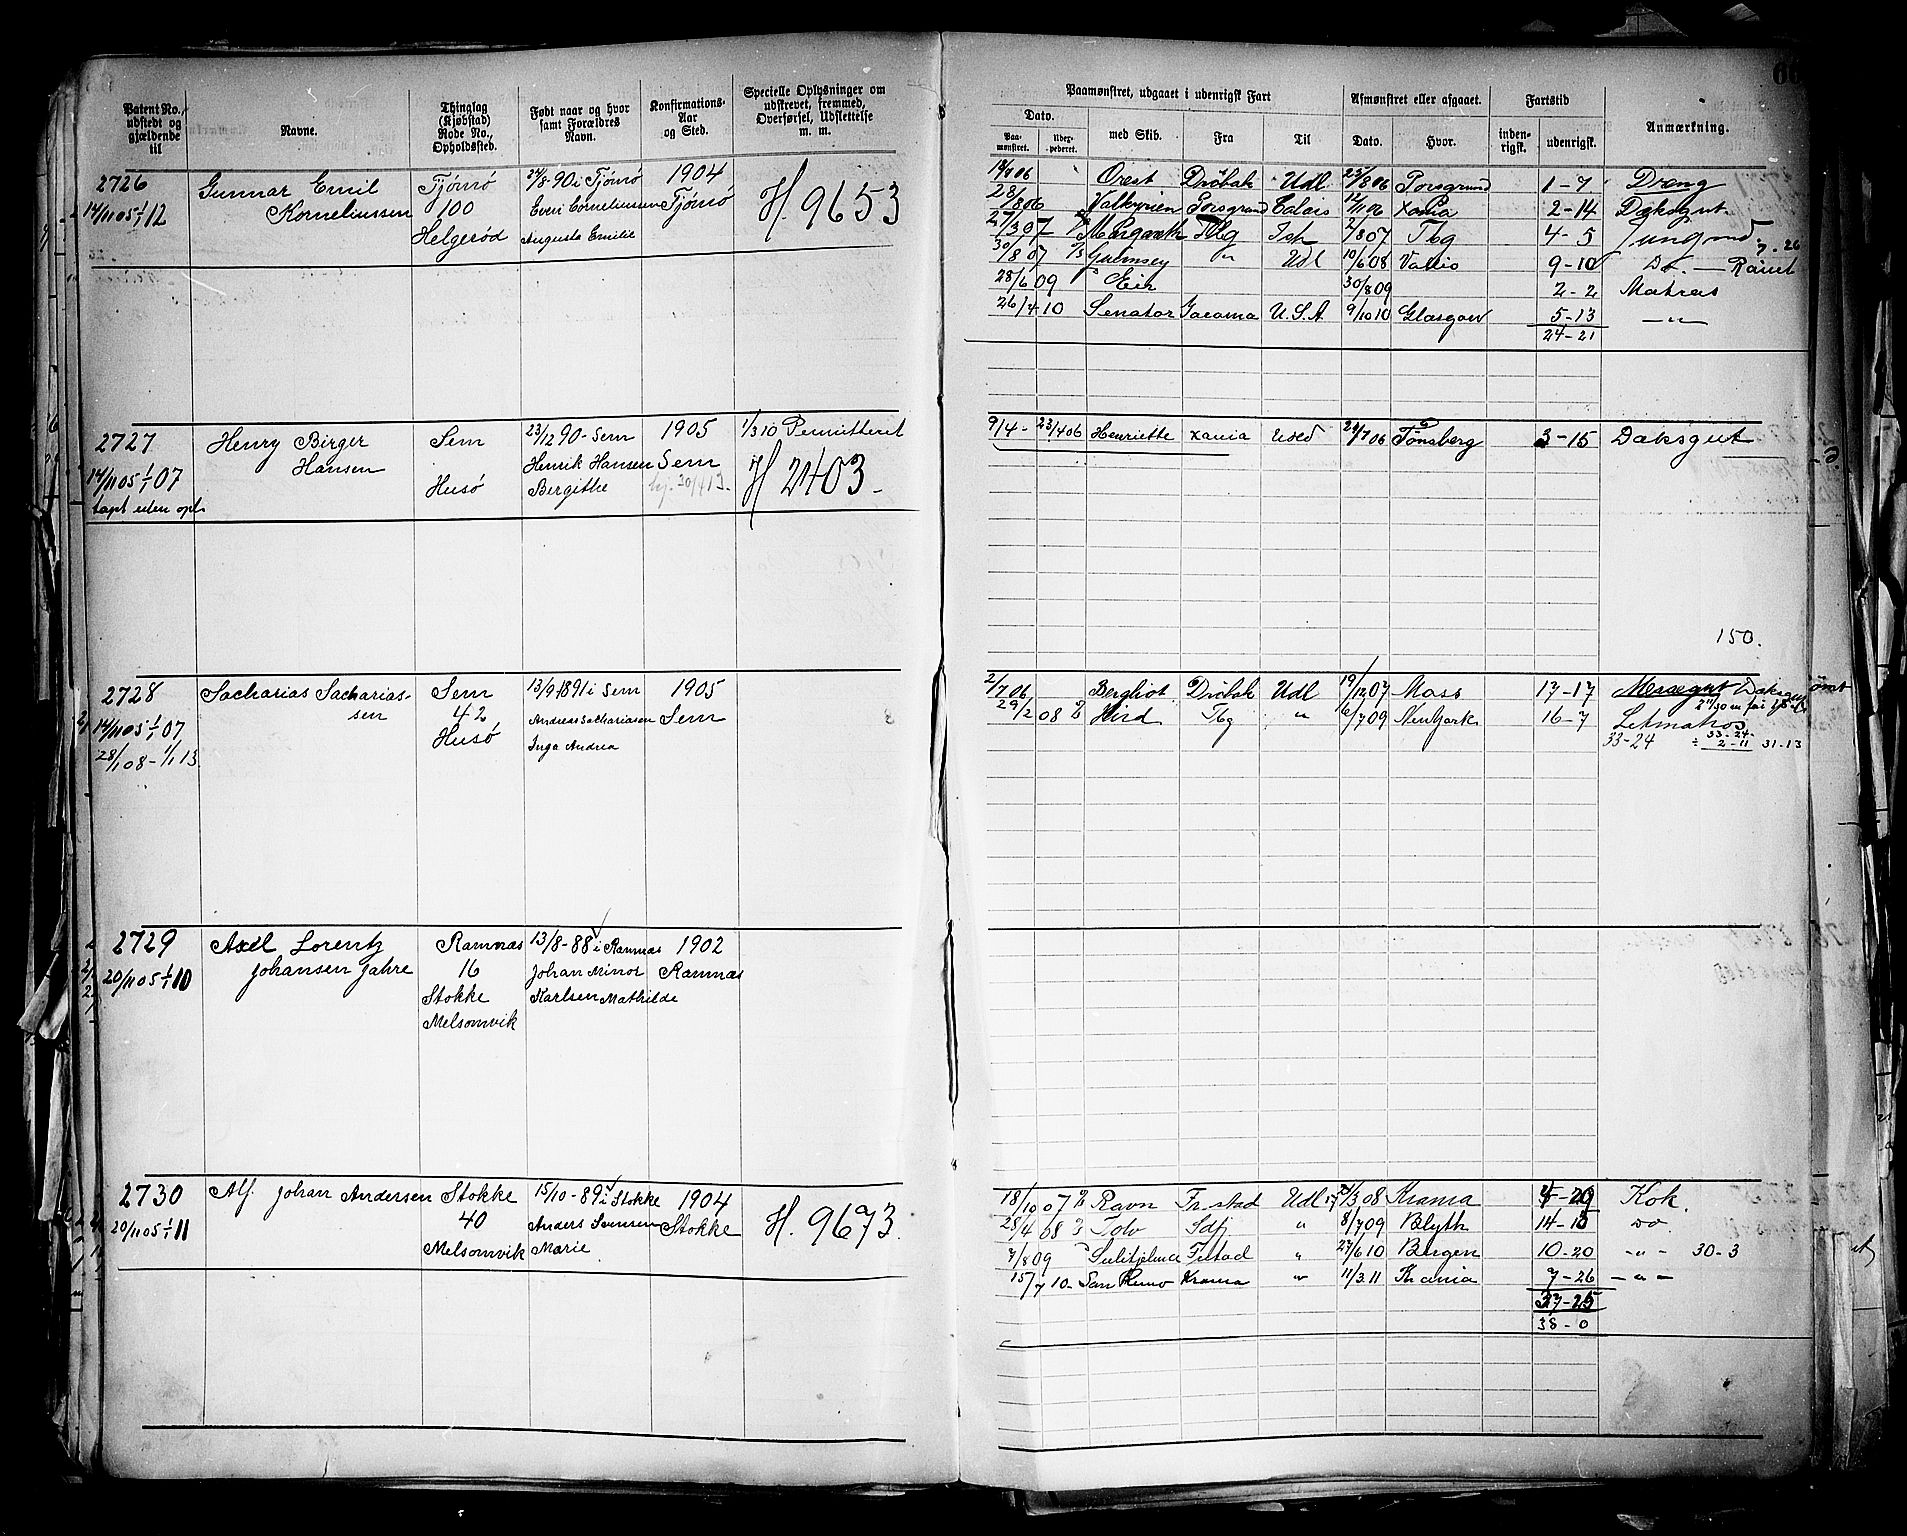 Patent No., udstedt og gjældende til
Navne.
Thinglag (Kjøbstad) Rode No., Opholdssted.
Født naar og hvor samt Forældres Navn.
Konfirmations-Aar og Sted.
Specielle Oplysninger om udskrevet, fremmed, Overførsel, Udslettelse m. m.
Paamønstret, udgaaet i udenrigsk Fart
Afmønstret eller afgaaet.
Fartstid
Anmærkning.
Dato.
Paa-mønstret.
med Skib.
Fra
Til
Dato.
Hvor.
inden-rigsk.
udenrigsk.
2726
14/11 05 1/1 12
Gunnar Emil
Korneliussen
Tjømø
100
Helgerød
24/8-90 i Tjømø
Even Corneliussen
Augusta Emilie
1904
Tjømø
H. 9653
06 Orest Drøbak Udl. 23/8 06 Porsgrund 1-7 Dreng
28/8 06 Valkyrien Porsgrund Calais 12/11 06 Xania 2-14 Dæksgut
27/3 07 Margareth Tbg 2/8 07 Tbg 4-5 Jungmd
30/8 07 Guernsey " Udl 10/6 08 9-10 Do. —
28/6 09 Eir 30/8 09 2-2 Matros
26/4-10 Senator Tacoma U.S.A 9/10 10 Glasgow 5-13 — " —
24-21
2727
14/11 05 1/1 07
tapt uden opl.
Henry Birger
Hansen
Sem
Husø
23/12 90 - Sem
Henrik Hansen
Bergithe
1905
Sem
30/4 13.
1/3 10 Permitteret
H 2403.
9/4 - 23/4 06 Henriette Xania Udld 24/7 06 Tønsberg 3-15 Dæksgut
150.
2728
14/11 05 1/1 07
28/1 08 - 1/1 13
Sacharias Sacharias-
sen
Sem
42
Husø
13/9 1891 i Sem
Andreas Sachariasen
Inga Andrea
1905
Sem
2/7 06 Bergliot Drøbak Udl 19/12 07 Moss 17-17 Messegut Dæksgut
29/2 08 Hird Tbg " 6/7 09 New York 16-7 Letmatros
33-24 33-24
÷ 2-11 31-13
2729
20/11 05 1/1 10
Axel Lorentz
Johansen Jahre
Ramnæs
16
Stokke
Melsomvik
13/8-88 i Ramnæs
Johan Minor
Karlsen Mathilde
1902
Ramnæs
2730
20/11 05 1/1 11
Alf. Johan Andersen
Stokke
40
Melsomvik
15/10-89 i Stokke
Anders Svensen
Marie
1904
Stokke
H. 9673.
18/10 07 Ravn Fr.stad Udl 3 08 Krania 29 Kok.
28/4 08 Tolv Sdfj " 8/7 09 Blyth 14-13 do
7/8 09 Sulitjelma Fr.stad " 27/6 10 Bergen 10-20 - " - 30-3
15/7 10- San Remo Krania " 11/3 11 Krania 7-26 - " -
37-25
38-0